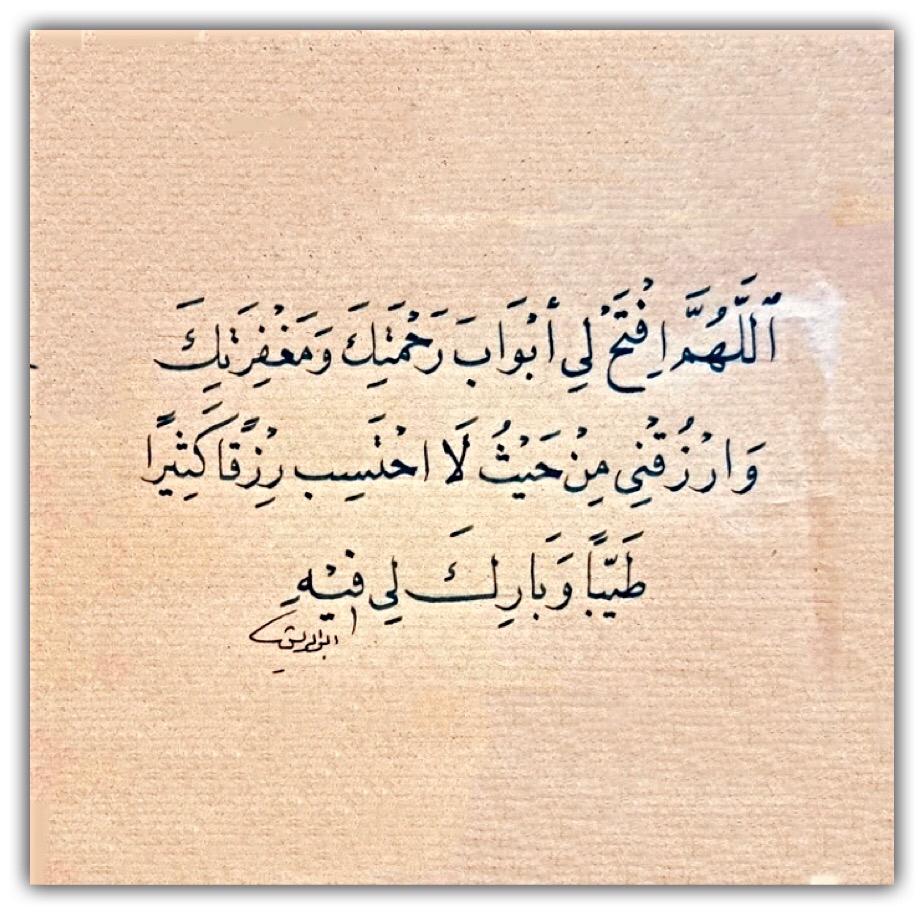 ٱللَّهُمَّ اِفْتَحْ لِي أَبْوَابَ رَحْمَتِكَ وَمَغْفِرَتِكَ
وَارْزُقْنِي مِنْ حَيْثُ لَا احْتَسِب رِزْقًا كَثِيرًا
طَيِّبًا وَبَارِك لِي فِيْهِ